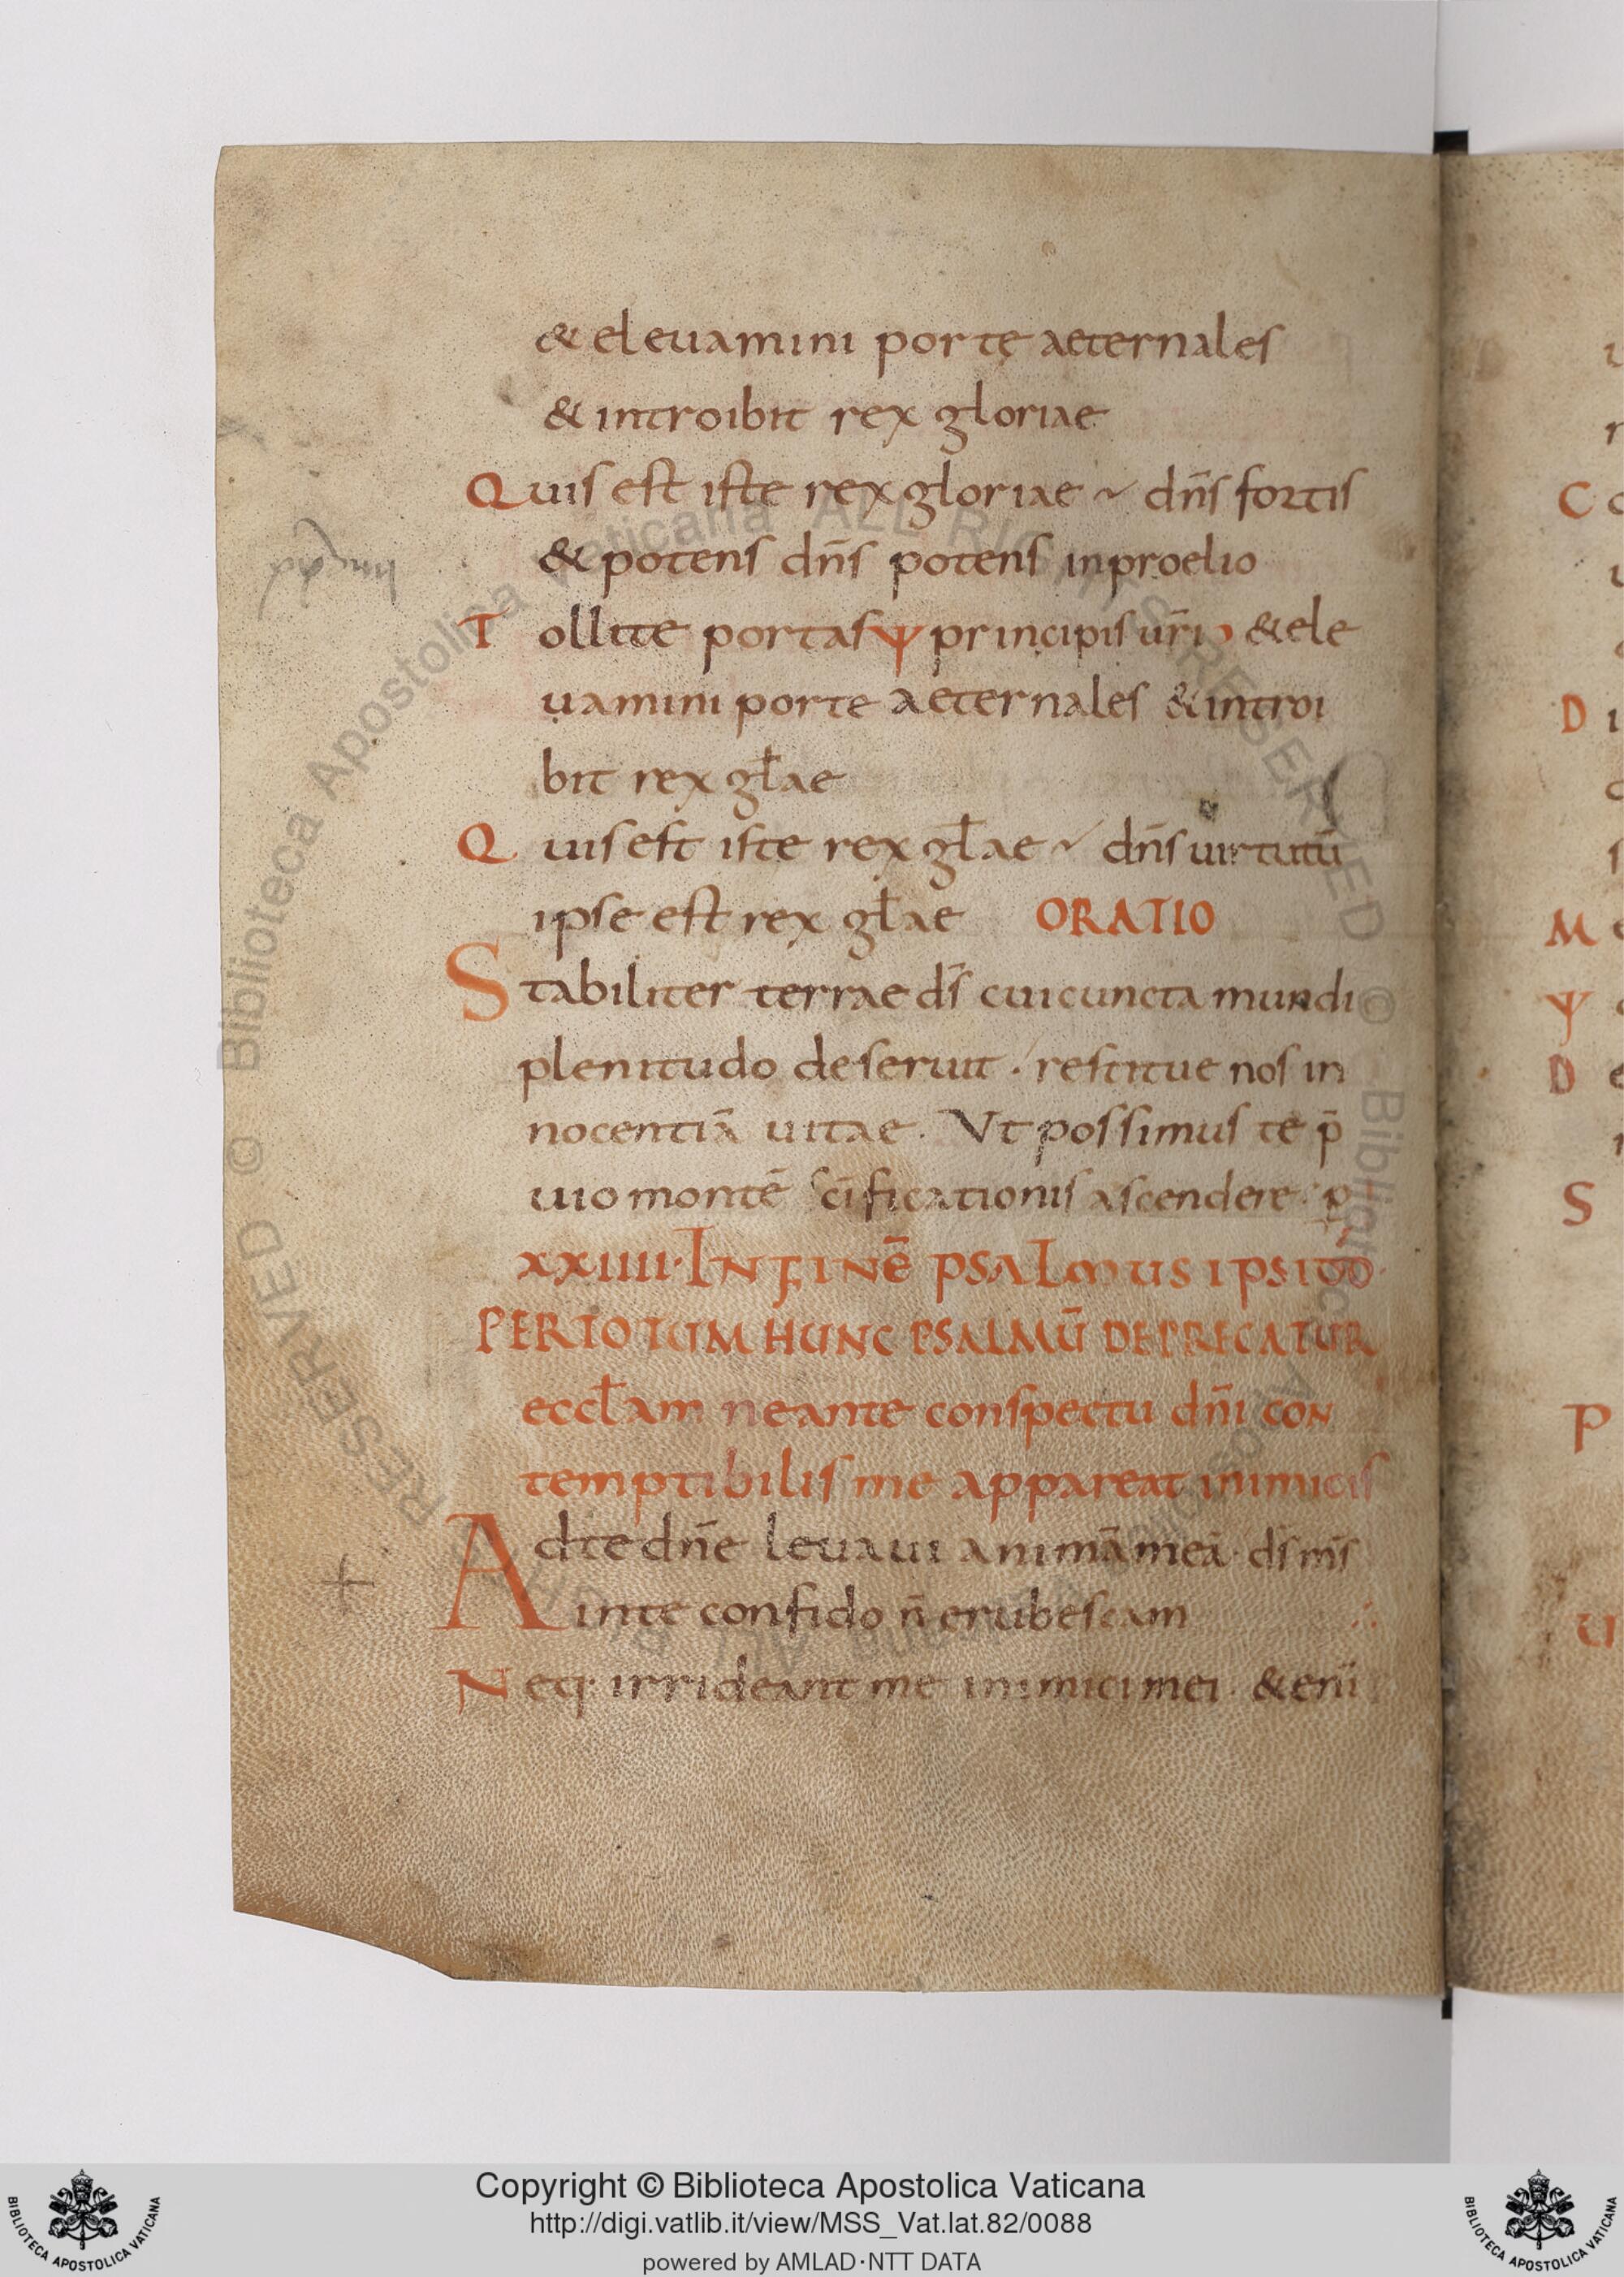 & eleuamini portę aeternales
& introibit rex gloriae
Quis est iste rex gloriae dn̄s fortis
& potens dn̄s potens inproelio
Tollite portas ψ principis ur̄i & ele
uamini porte aeternales & introi
bit rex gl̄ae
Quis est iste rex gl̄ae dn̄s uirtutū
ipse est rex gl̄ae ORATIO
Stabiliter terrae ds̄ cuicuncta mundi
plenitudo deseruit . restitue nos in
nocentiā uitae. Vt possimus te p̄
uio montē sc̄ificationis ascendere. p
XXIIII. INFINĒ PSALMUS IPSI DD
PERTOTUM HUNC PSALMŪ DEPRECATUR
eccl̄am neante conspectu dn̄i con
temptibilis me appareat inimicis
Adte dn̄e leuaui animā meā. ds̄ ms̄
inte confido n̄ erubescam
Neq: irrideant me inimici mei. & enī
Biblioteca Apostolica Vaticana ALL RIGHTS RESERVED ©
Copyright © Biblioteca Apostolica Vaticana
http://digi.vatlib.it/view/MSS_Vat.lat.82/0088
powered by AMLAD·NTT DATA
BIBLIOTECA APOSTOLICA VATICANA
BIBLIOTECA APOSTOLICA VATICANA